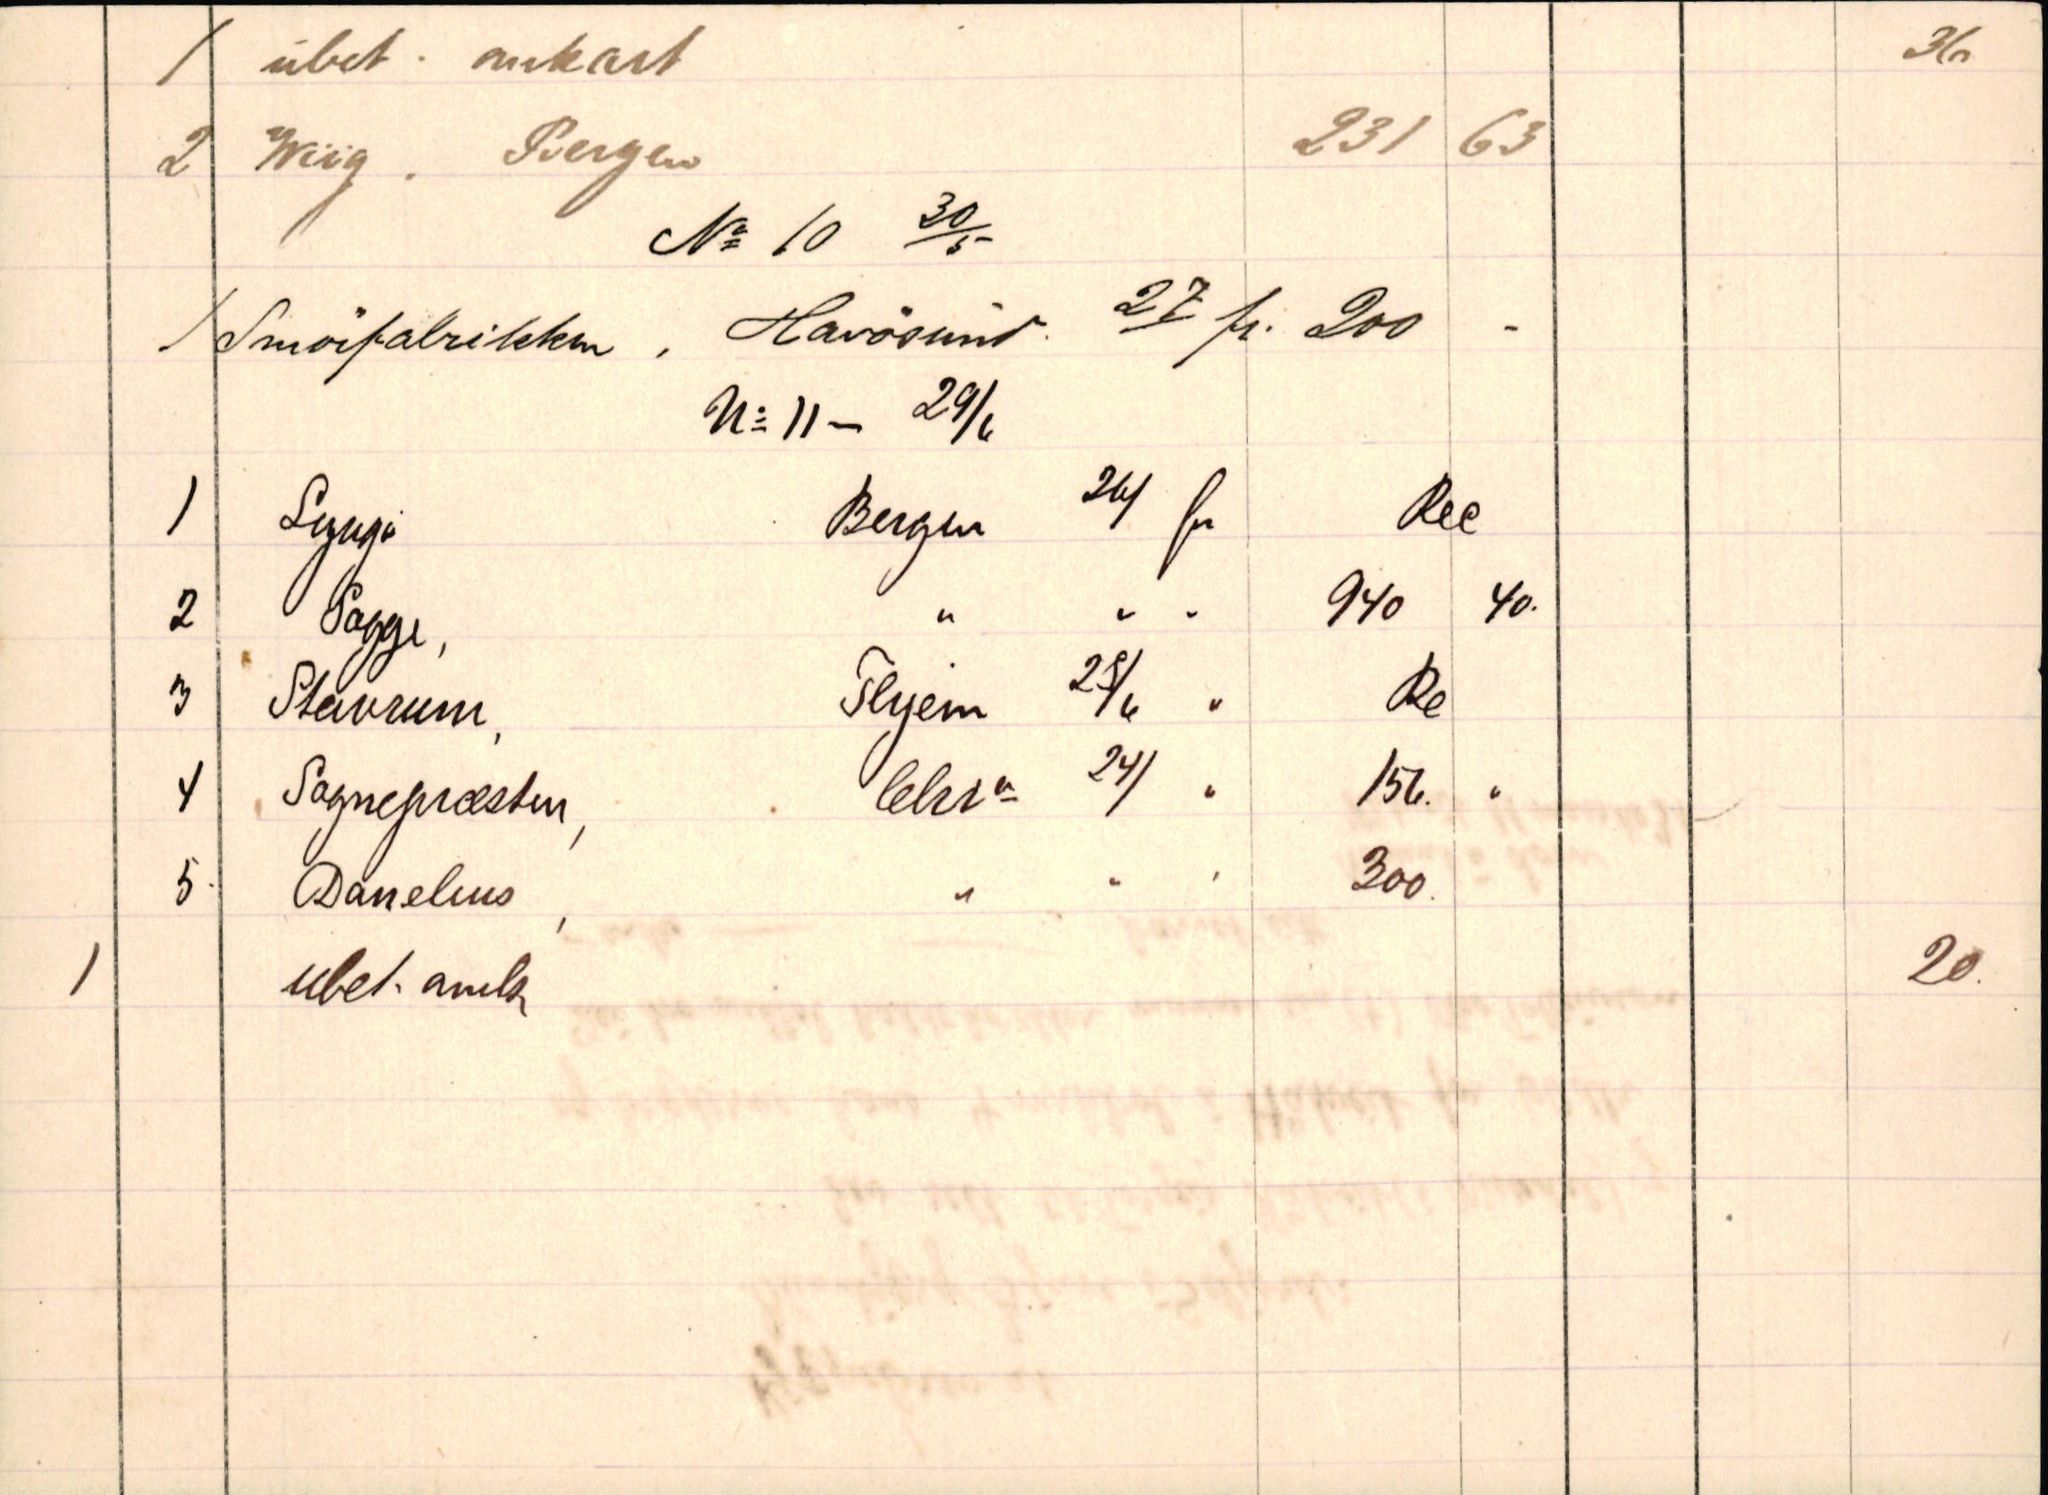 1 übet. amkart 36
2 Wiig. Bergen 231 63
No 10 30/5
1 Smörfabrikken, Havösund. 27 fr. 200 -
No 11 - 29/6
1 Lyngö Bergen 26/ fr Rec
2 Sagge, " " - 940 40.
3 Stavrum, 28/6 " Re
4 Sognepræsten, Chra 24/ " 156. "
5. Danelius, " " ' 300.
1 ubet. amk 20.